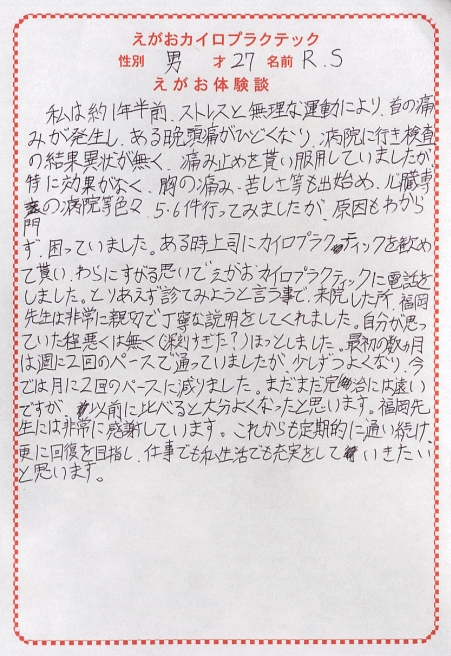 えがおカイロプラクテック
性別 男 才27 名前 R.S
えがお体験談
私は約1年半前、ストレスと無理な運動により、首の痛
みが発生し、ある晩頭痛がひどくなり、病院に行き検査
の結果異状が無く、痛み止めを貰い服用していましたが
特に効果がなく、胸の痛み・苦しさ等も出始め、心臓専
門の病院等色々、5・6件行ってみましたが、原因もわから
ず、困っていました。ある時上司にカイロプラクティックを歓め
て貰い、わらにすがる思いでえがおカイロプラクティックに電話を
しました。とりあえず診てみようと言う事で、来院した所、福岡
先生は非常に親切で丁寧な説明をしてくれました。自分が思っ
ていた程悪くは無く(深刻すぎた?)ほっとしました。最初の数か月
は週に2回のペースで通っていましたが、少しずつよくなり、今
では月に2回のペースに減りました。まだまだ完治には遠い
ですが、以前に比べると大分よくなったと思います。福岡先
生には非常に感謝しています。これからも定期的に通い続け、
更に回復を目指し、仕事でも私生活でも充実をしていきたい
と思います。